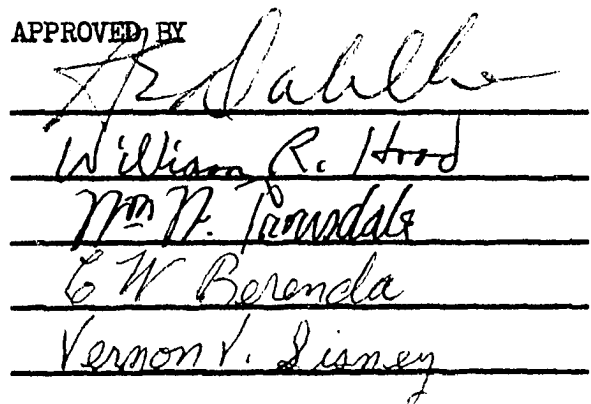 APPROVED BY
William R. Hood
Wm N. Trousdale
C W Berenda
Vernon V. Sisney